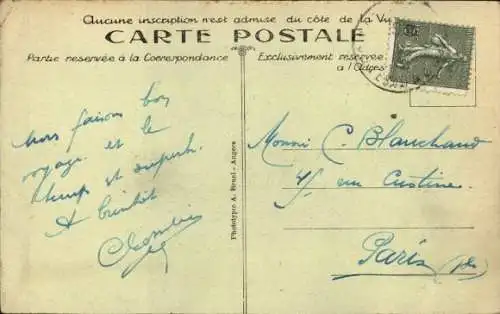 Aucune inscription n'est admise du côté de la Vue
CARTE POSTALE
Partie reservée à la Correspondance
Exclusivement reservée
à l'Adresse
Nous faisons bon
voyage et le
temps est superbe.
A bientôt
Phototypie A. Bruel - Angers
C. Blanchard
45 rue Custine
Paris